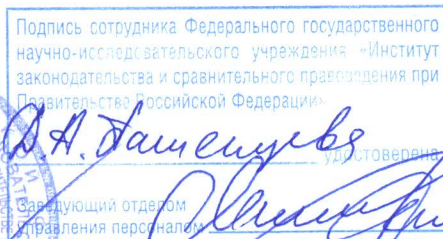 Подпись сотрудника Федерального государственного
научно-исследовательского учреждения «Институт
законодательства и сравнительного правоведения при
Правительстве Российской Федерации»
Д.А. Пашенцева
удостоверена
Заведующий отделом
управления персоналом